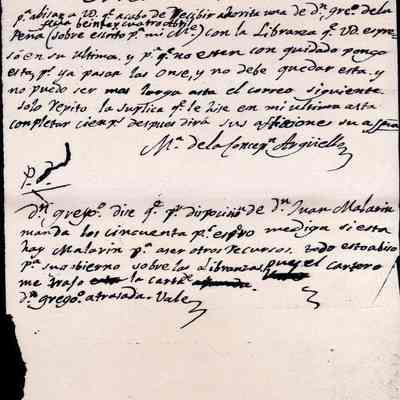 pª abisar a VD. qᵉ acabo de Recibir ahorita una de Dⁿ. Greº. de la
fecha beintecuatro
Peña (sobre escrito pª. mi Mᵉ.) con la Libranza qᵉ. VD. espre-
só en su ultima, y pª. qᵉ. no esten con quidado pongo
esta, pˢ. ya pasan las onse, y no debe quedar esta, y
no puedo ser mas larga asta el correo siguiente
solo Repito la suplica qᵉ. le hise en mi ultima asta
completar cien pˢ. despues dirá sus
Mª. de la Concepⁿ. Argüelles
P.D.
Dⁿ gregoº. dise qᵉ. pʳ. disposisⁿ de Dⁿ. Juan Malarin
manda los cincuenta pˢ. espero me diga si esta
hay Malarin pª. aser otros Recursos. todo esto abiso
pª. su gobierno sobre las Libranzas, pues el cartero
me trajo la carta de
Dⁿ. gregoº. atrasada. Vale